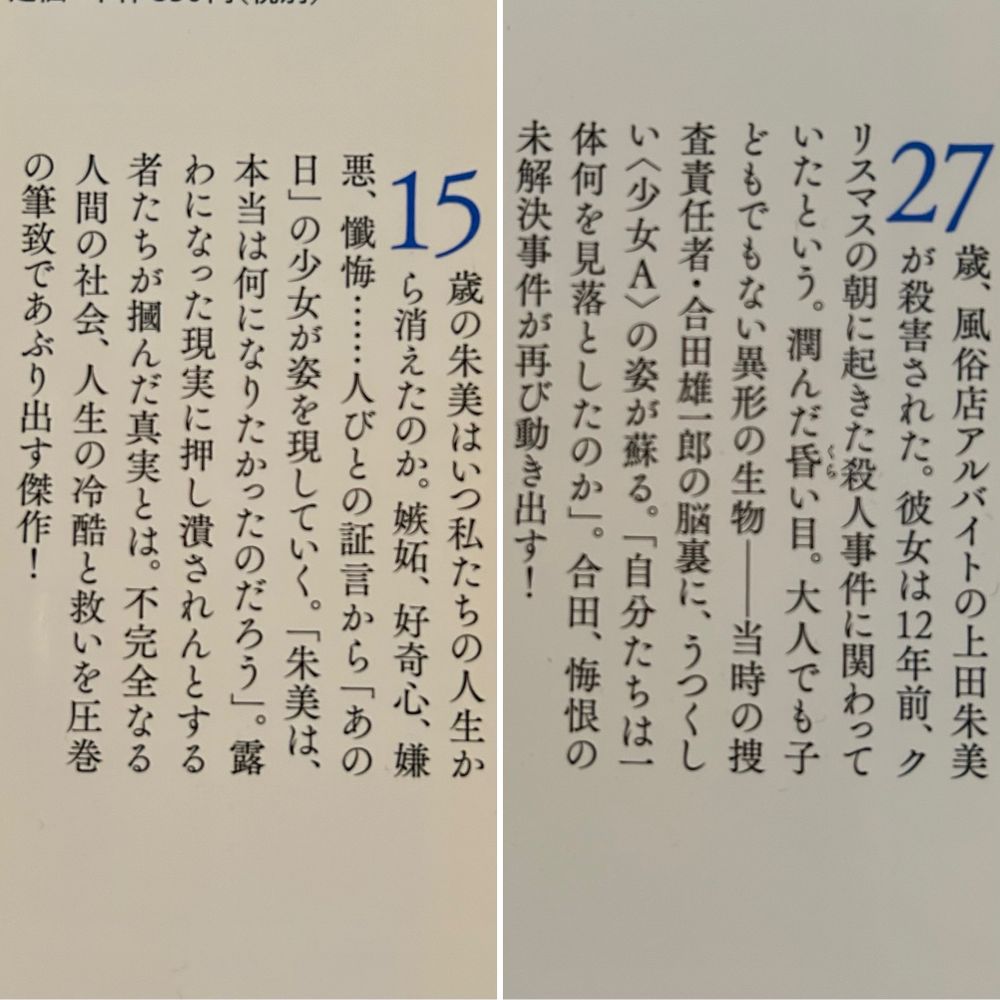 27歳、風俗店アルバイトの上田朱美
が殺害された。彼女は12年前、ク
リスマスの朝に起きた殺人事件に関わって
いたという。潤んだ昏い目。大人でも子
どもでもない異形の生物――当時の捜
査責任者・合田雄一郎の脳裏に、うつくし
い〈少女A〉の姿が蘇る。「自分たちは一
体何を見落としたのか」。合田、悔恨の
未解決事件が再び動き出す!
15歳の朱美はいつ私たちの人生か
ら消えたのか。嫉妬、好奇心、嫌
悪、懺悔……人びとの証言から「あの
日」の少女が姿を現していく。「朱美は、
本当は何になりたかったのだろう」。露
わになった現実に押し潰されんとする
者たちが摑んだ真実とは。不完全なる
人間の社会、人生の冷酷と救いを圧巻
の筆致であぶり出す傑作!